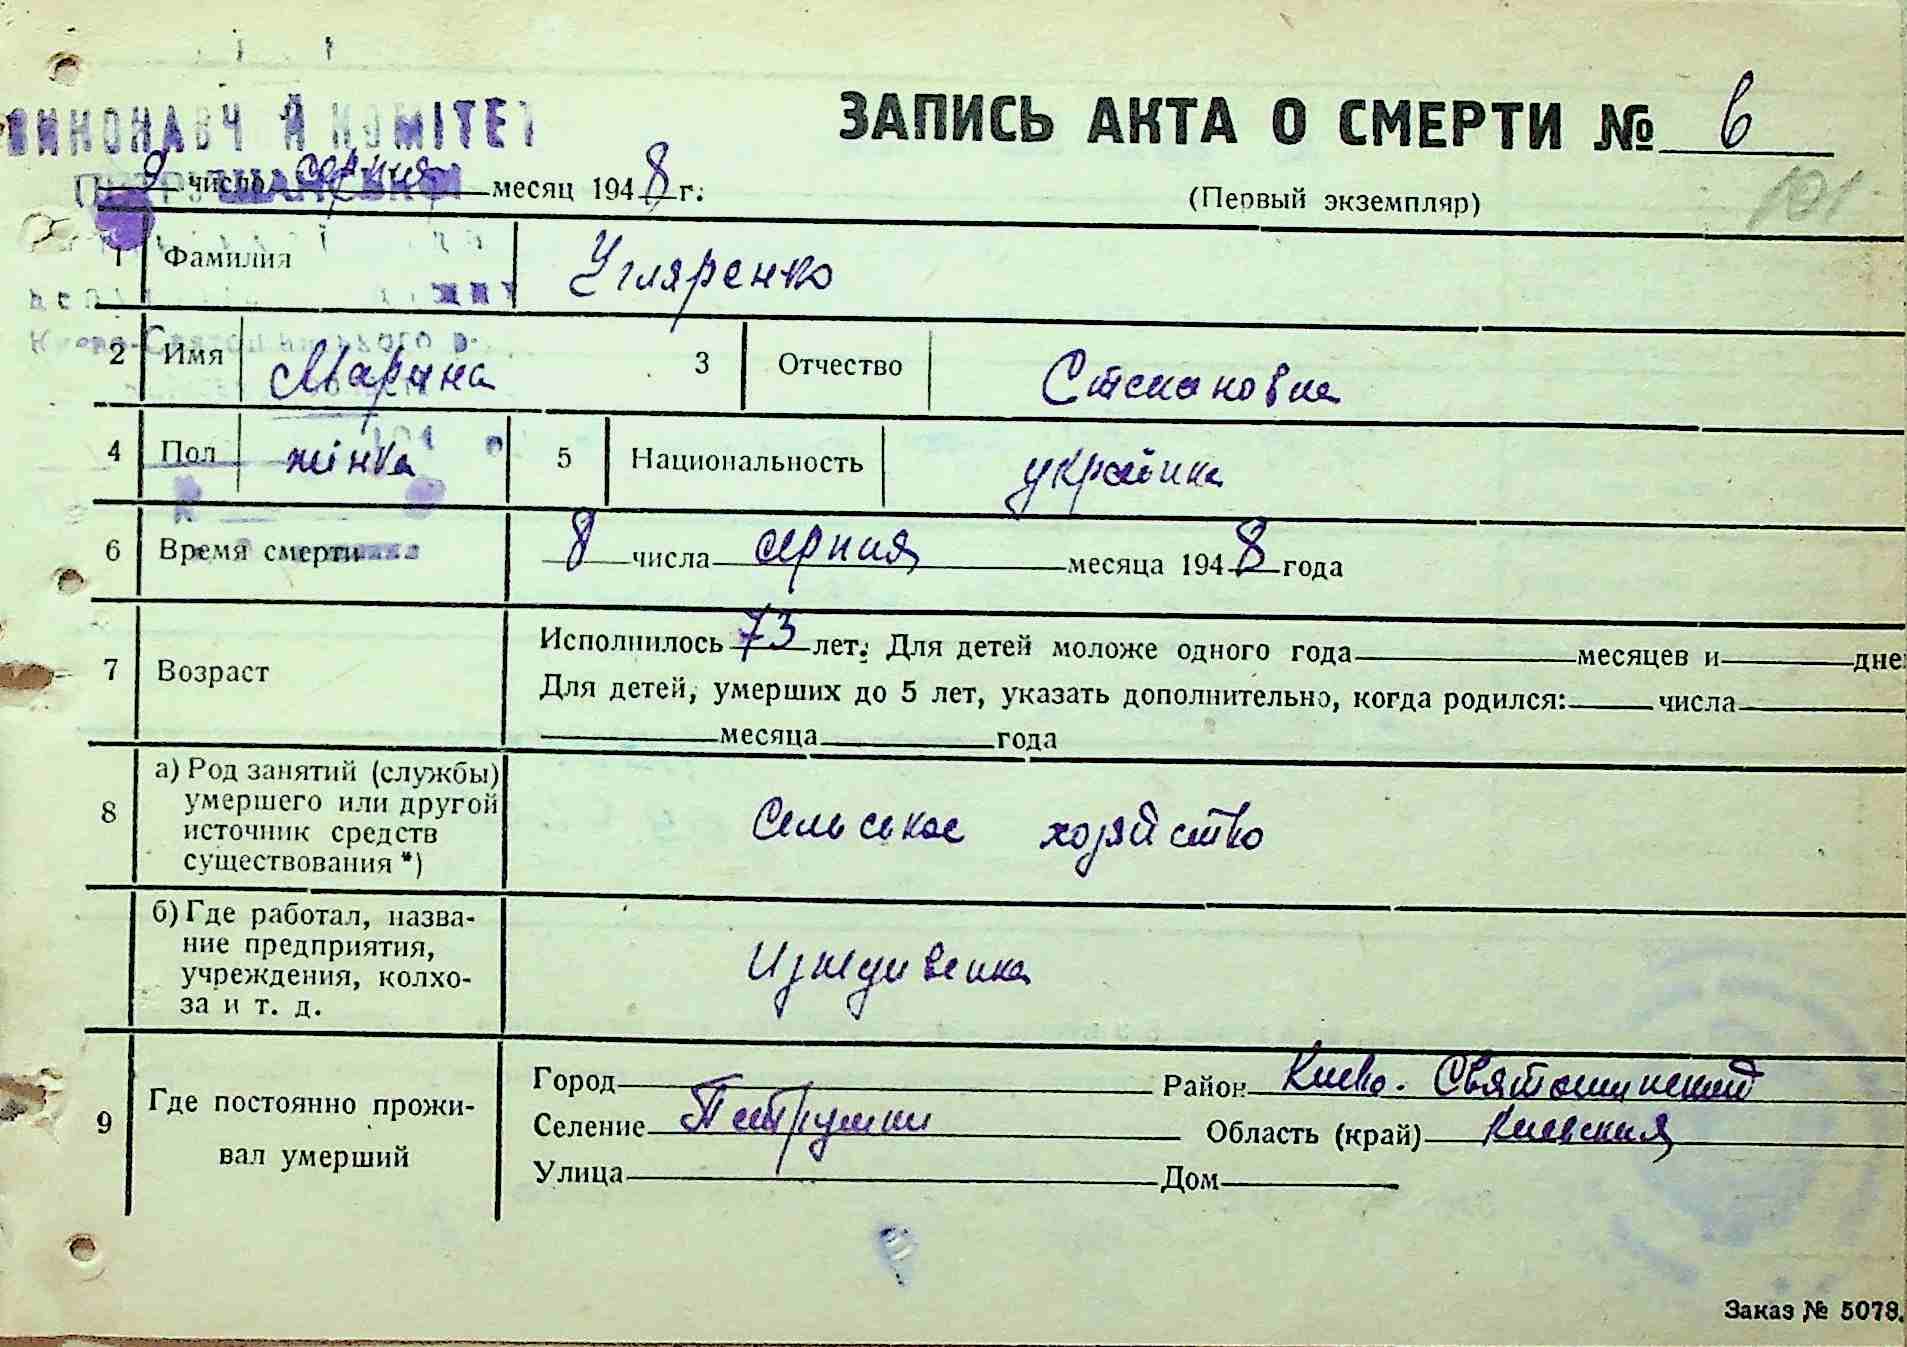 ВИКОНАВЧИЙ КОМІТЕТ
ЗАПИСЬ АКТА О СМЕРТИ № 6
9 число серпня месяц 1948 г.
(Первый экземпляр)
101
1 Фамилия Угляренко
2 Имя Марина 3 Отчество Степановна
4 Пол жінка 5 Национальность українка
6 Время смерти 8 числа серпня месяца 1948 года
7 Возраст
Исполнилось 73 лет. Для детей моложе одного года месяцев и дне
Для детей, умерших до 5 лет, указать дополнительно, когда родился: числа
месяца года
8 а) Род занятий (службы)
умершего или другой
источник средств
существования *)
Сельское хозяйство
б) Где работал, назва-
ние предприятия,
учреждения, колхо-
за и т. д.
Иждивенка
9 Где постоянно прожи-
вал умерший
Город Район Киево-Святошинский
Селение Петрушки Область (край) Киевская
Улица Дом
Заказ № 5078.